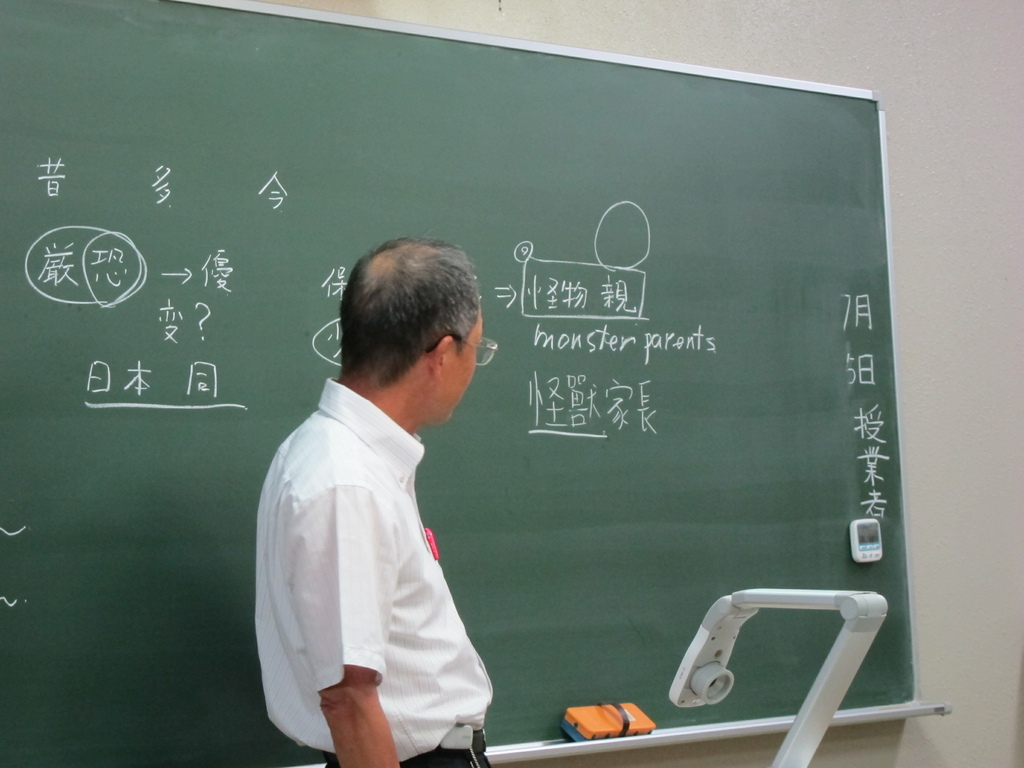 昔 多 今
厳 恐 → 優
変?
日本 同
保
⇒ 怪物 親
monster parents
怪獸家長
7月
5日
授業者